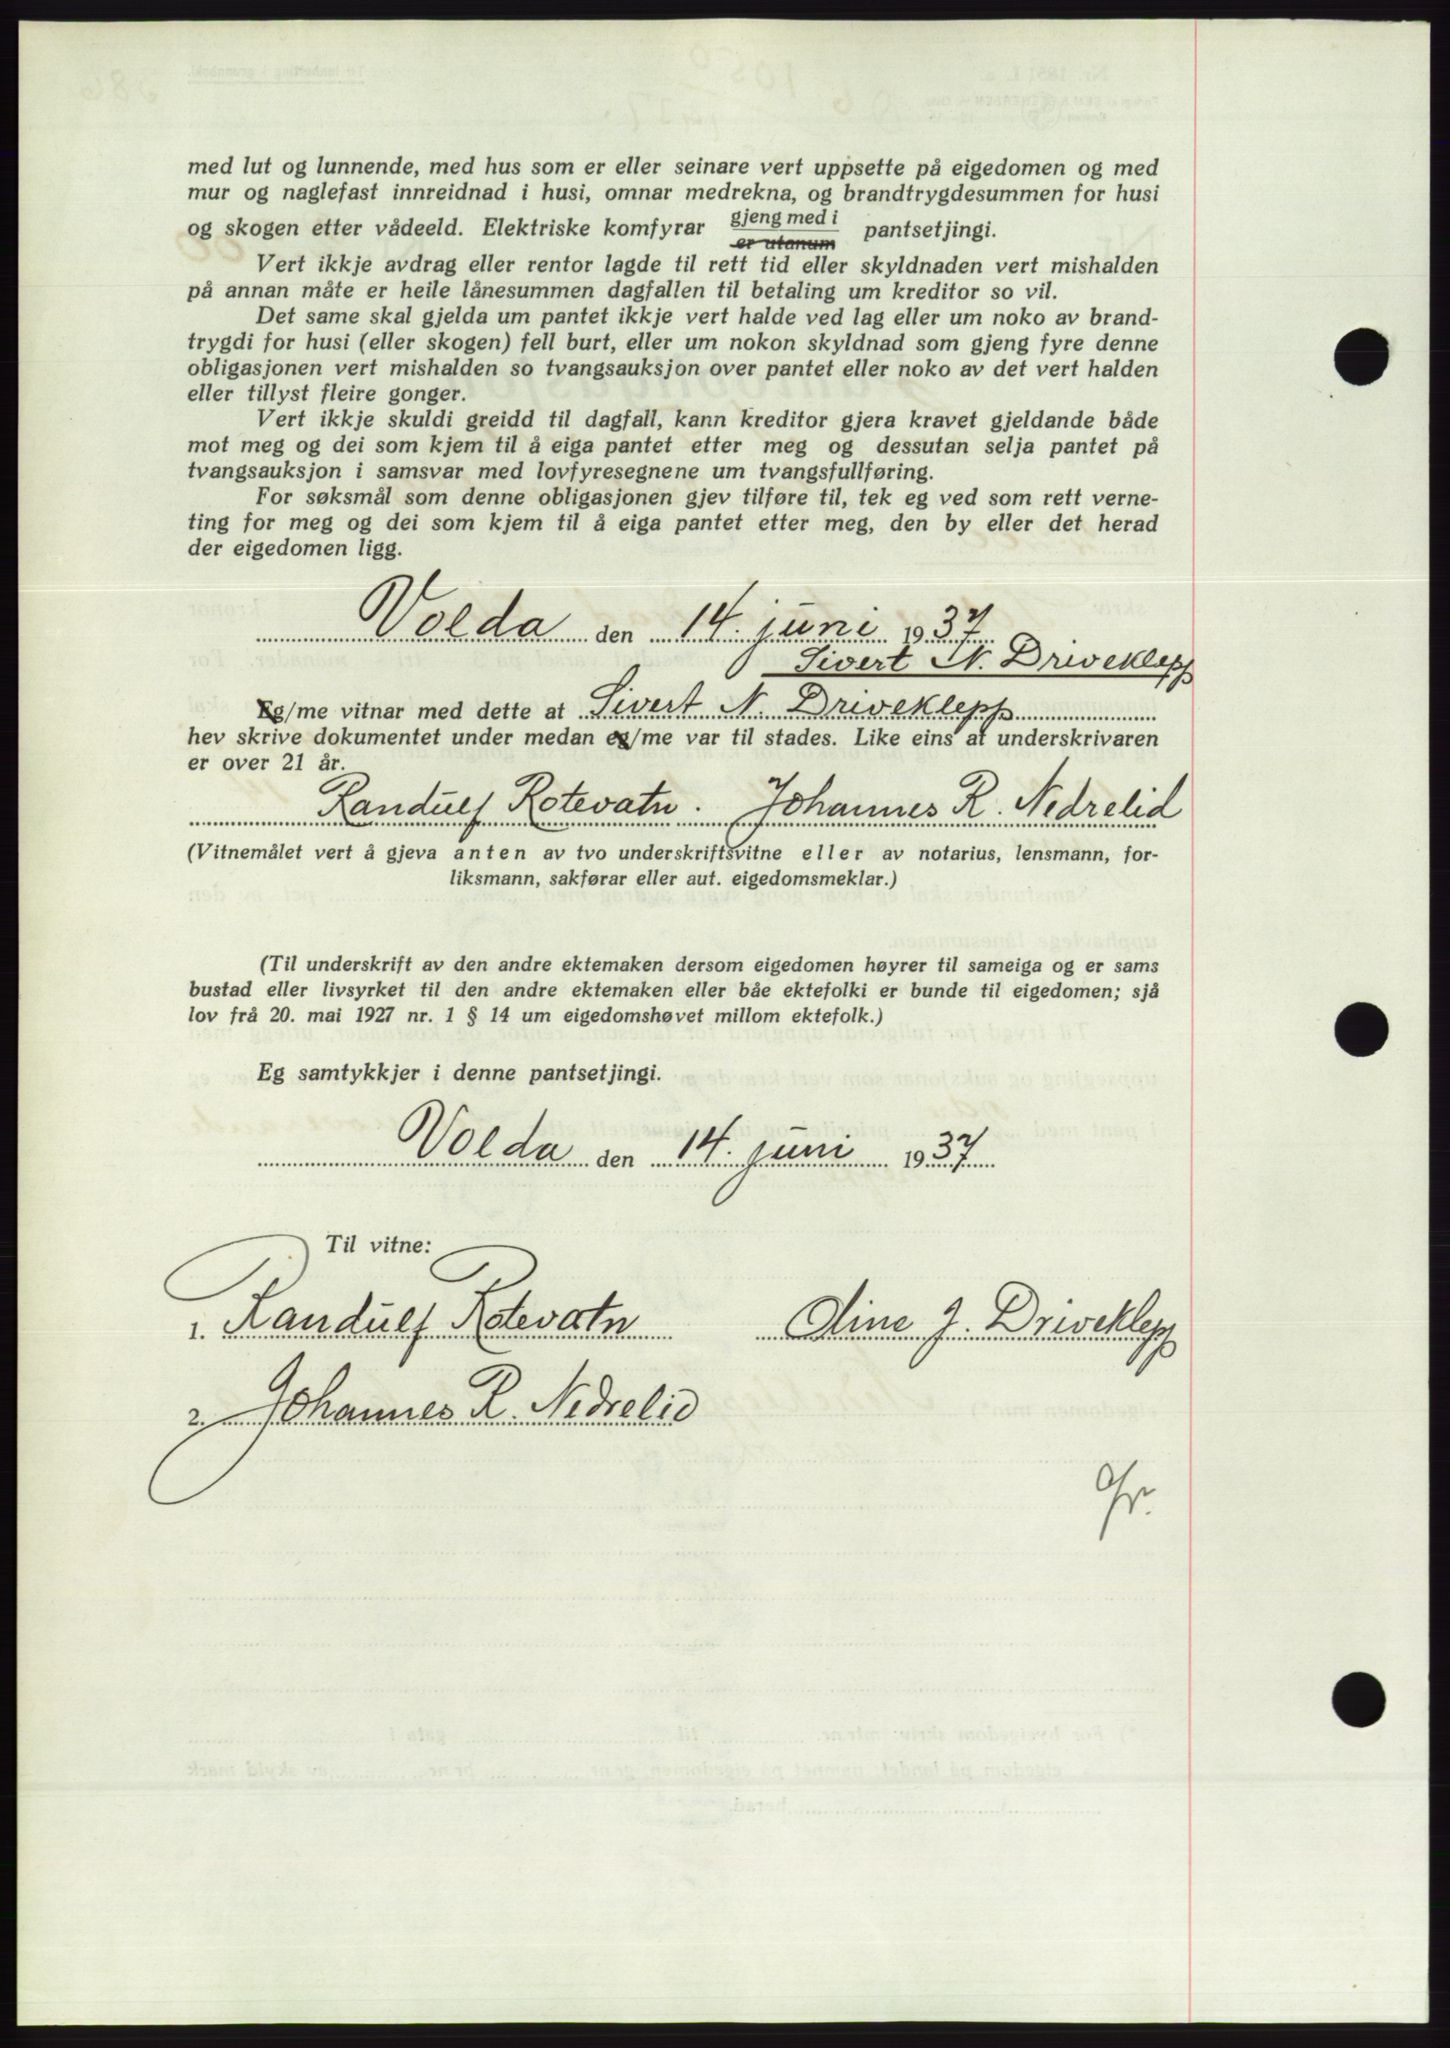 med lut og lunnende, med hus som er eller seinare vert uppsette på eigedomen og med
mur og naglefast innreidnad i husi, omnar medrekna, og brandtrygdesummen for husi
og skogen etter vådeeld. Elektriske komfyrar gjeng med i / er utanum pantsetjingi.
Vert ikkje avdrag eller rentor lagde til rett tid eller skyldnaden vert mishalden
på annan måte er heile lånesummen dagfallen til betaling um kreditor so vil.
Det same skal gjelda um pantet ikkje vert halde ved lag eller um noko av brand-
trygdi for husi (eller skogen) fell burt, eller um nokon skyldnad som gjeng fyre denne
obligasjonen vert mishalden so tvangsauksjon over pantet eller noko av det vert halden
eller tillyst fleire gonger.
Vert ikkje skuldi greidd til dagfall, kann kreditor gjera kravet gjeldande både
mot meg og dei som kjem til å eiga pantet etter meg og dessutan selja pantet på
tvangsauksjon i samsvar med lovfyresegnene um tvangsfullføring.
For søksmål som denne obligasjonen gjev tilføre til, tek eg ved som rett verne-
ting for meg og dei som kjem til å eiga pantet etter meg, den by eller det herad
der eigedomen ligg.
Volda den 14. juni 1937
Sivert N. Driveklepp
Eg/me vitnar med dette at Sivert N. Driveklepp
hev skrive dokumentet under medan eg/me var til stades. Like eins at underskrivaren
er over 21 år.
Randulf Rotevatn. Johannes R. Nedrelid
(Vitnemålet vert å gjeva anten av tvo underskriftsvitne eller av notarius, lensmann, for-
liksmann, sakførar eller aut. eigedomsmeklar.)
(Til underskrift av den andre ektemaken dersom eigedomen høyrer til sameiga og er sams
bustad eller livsyrket til den andre ektemaken eller båe ektefolki er bunde til eigedomen; sjå
lov frå 20. mai 1927 nr. 1 § 14 um eigedomshøvet millom ektefolk.)
Eg samtykkjer i denne pantsetjingi.
Volda den 14. juni 1937
Til vitne:
1. Randulf Rotevatn Oline J. Driveklepp
2. Johannes R. Nedrelid